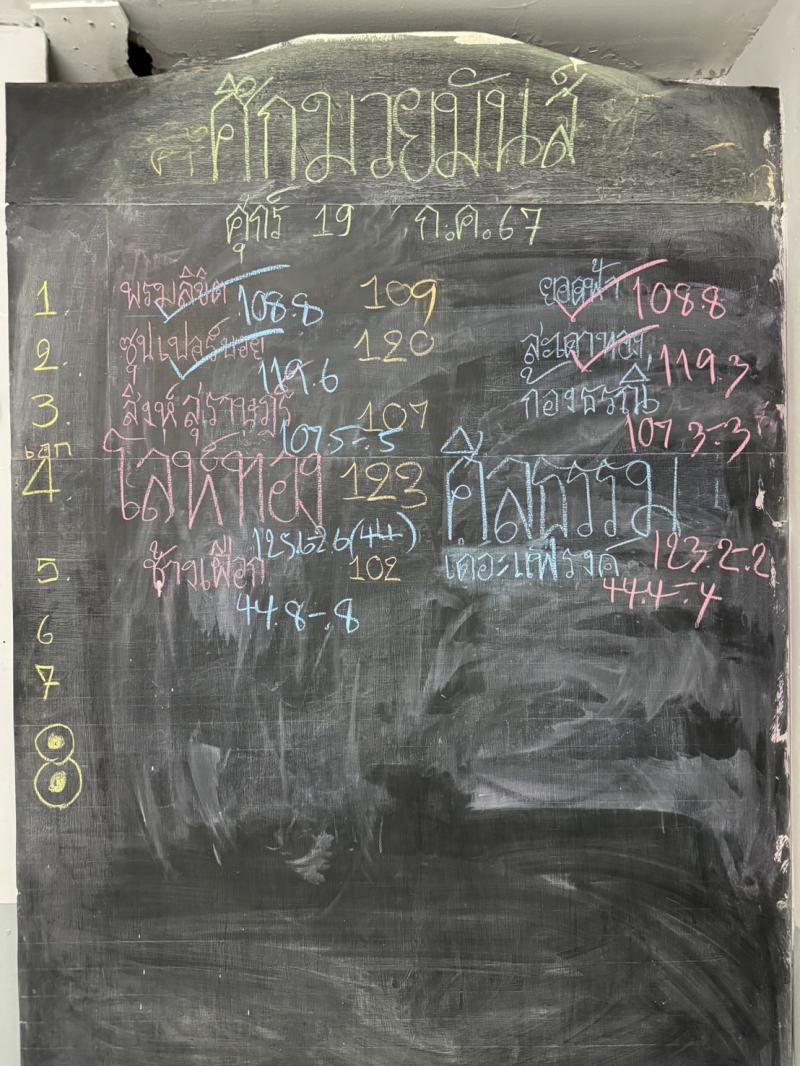 ศึกมวยมันส์
ศุกร์ 19 ก.ค.67
1. พรมลิขิต 108.8 109 ยอดฟ้า 108.8
2. ซุปเปอร์บอย 119.6 120 สะเดาทอง 119.3
3. สิงห์สุราษฎร์ 107.5-.5 107 ก้องธรณี 107.3-.3
4. โล่ห์ทอง 125.6-2.6(44) 123 ศิลธรรม 123.2-.2
5. ช้างเผือก 44.8-.8 102 เดอะแฟร้งค์ 44.4-.4
6
7
8